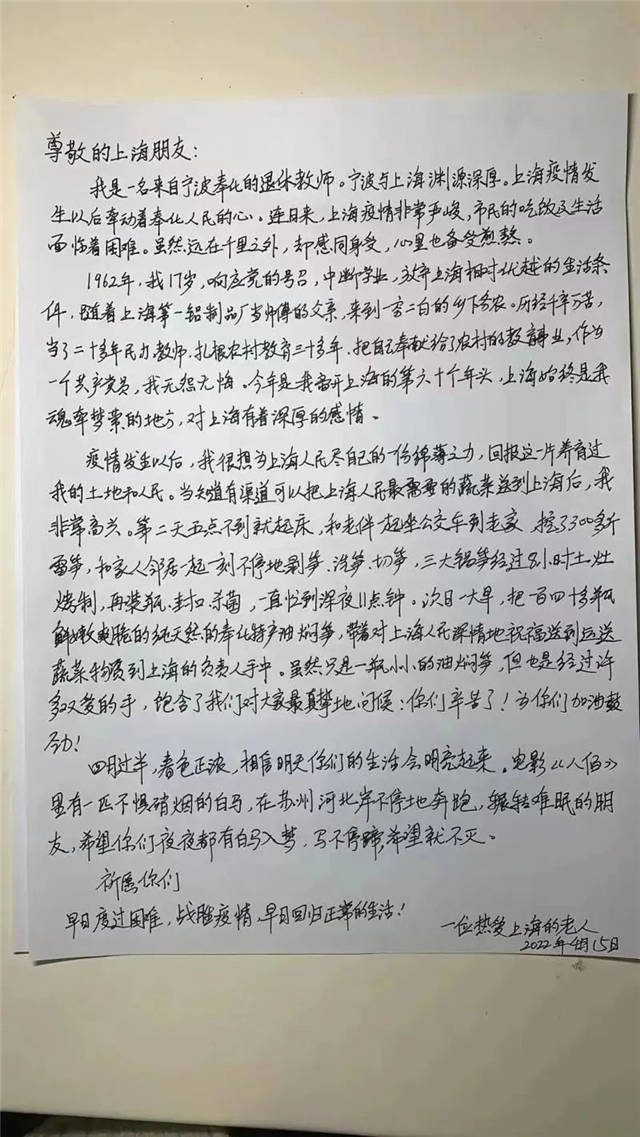 尊敬的上海朋友:
我是一名来自宁波奉化的退休教师。宁波与上海渊源深厚。上海疫情发
生以后牵动着奉化人民的心。连日来,上海疫情非常严峻,市民的吃饭及生活
面临着困难。虽然远在千里之外,却感同身受,心里也备受煎熬。
1962年,我17岁,响应党的号召,中断学业,放弃上海相对优越的生活条
件,随着上海第一铝制品厂当师傅的父亲,来到一穷二白的乡下务农。历经千辛万苦,
当了二十多年民办教师,扎根农村教育三十多年,把自己奉献给了农村的教育事业,作为
一个共产党员,我无怨无悔。今年是我离开上海的第六十个年头,上海始终是我
魂牵梦萦的地方,对上海有着深厚的感情。
疫情发生以后,我很想为上海人民尽自己的一份绵薄之力,回报这一片养育过
我的土地和人民。当知道有渠道可以把上海人民最需要的蔬菜送到上海后,我
非常高兴。第二天五点不到就起床,和老伴一起坐公交车到老家,挖了300多斤
雷笋,和家人邻居一起一刻不停地剥笋、洗笋、切笋,三大锅笋经过8小时土灶
烧制,再装瓶、封口、杀菌,一直忙到深夜11点钟。次日一大早,把一百四十多瓶
鲜嫩爽脆的纯天然的奉化特产油焖笋,带着对上海人民深情地祝福送到运送
蔬菜物资到上海的负责人手中。虽然只是一瓶小小的油焖笋,但也是经过许
多双爱的手,饱含了我们对大家最真挚地问候:你们辛苦了!为你们加油鼓
劲!
四月过半,春色正浓,相信明天你们的生活会明亮起来。电影《八佰》
里有一匹不惧硝烟的白马,在苏州河北岸不停地奔跑,辗转难眠的朋
友,希望你们夜夜都有白马入梦,马不停蹄,希望就不灭。
祈愿你们
早日度过困难,战胜疫情,早日回归正常的生活!
一位热爱上海的老人
2022年4月15日